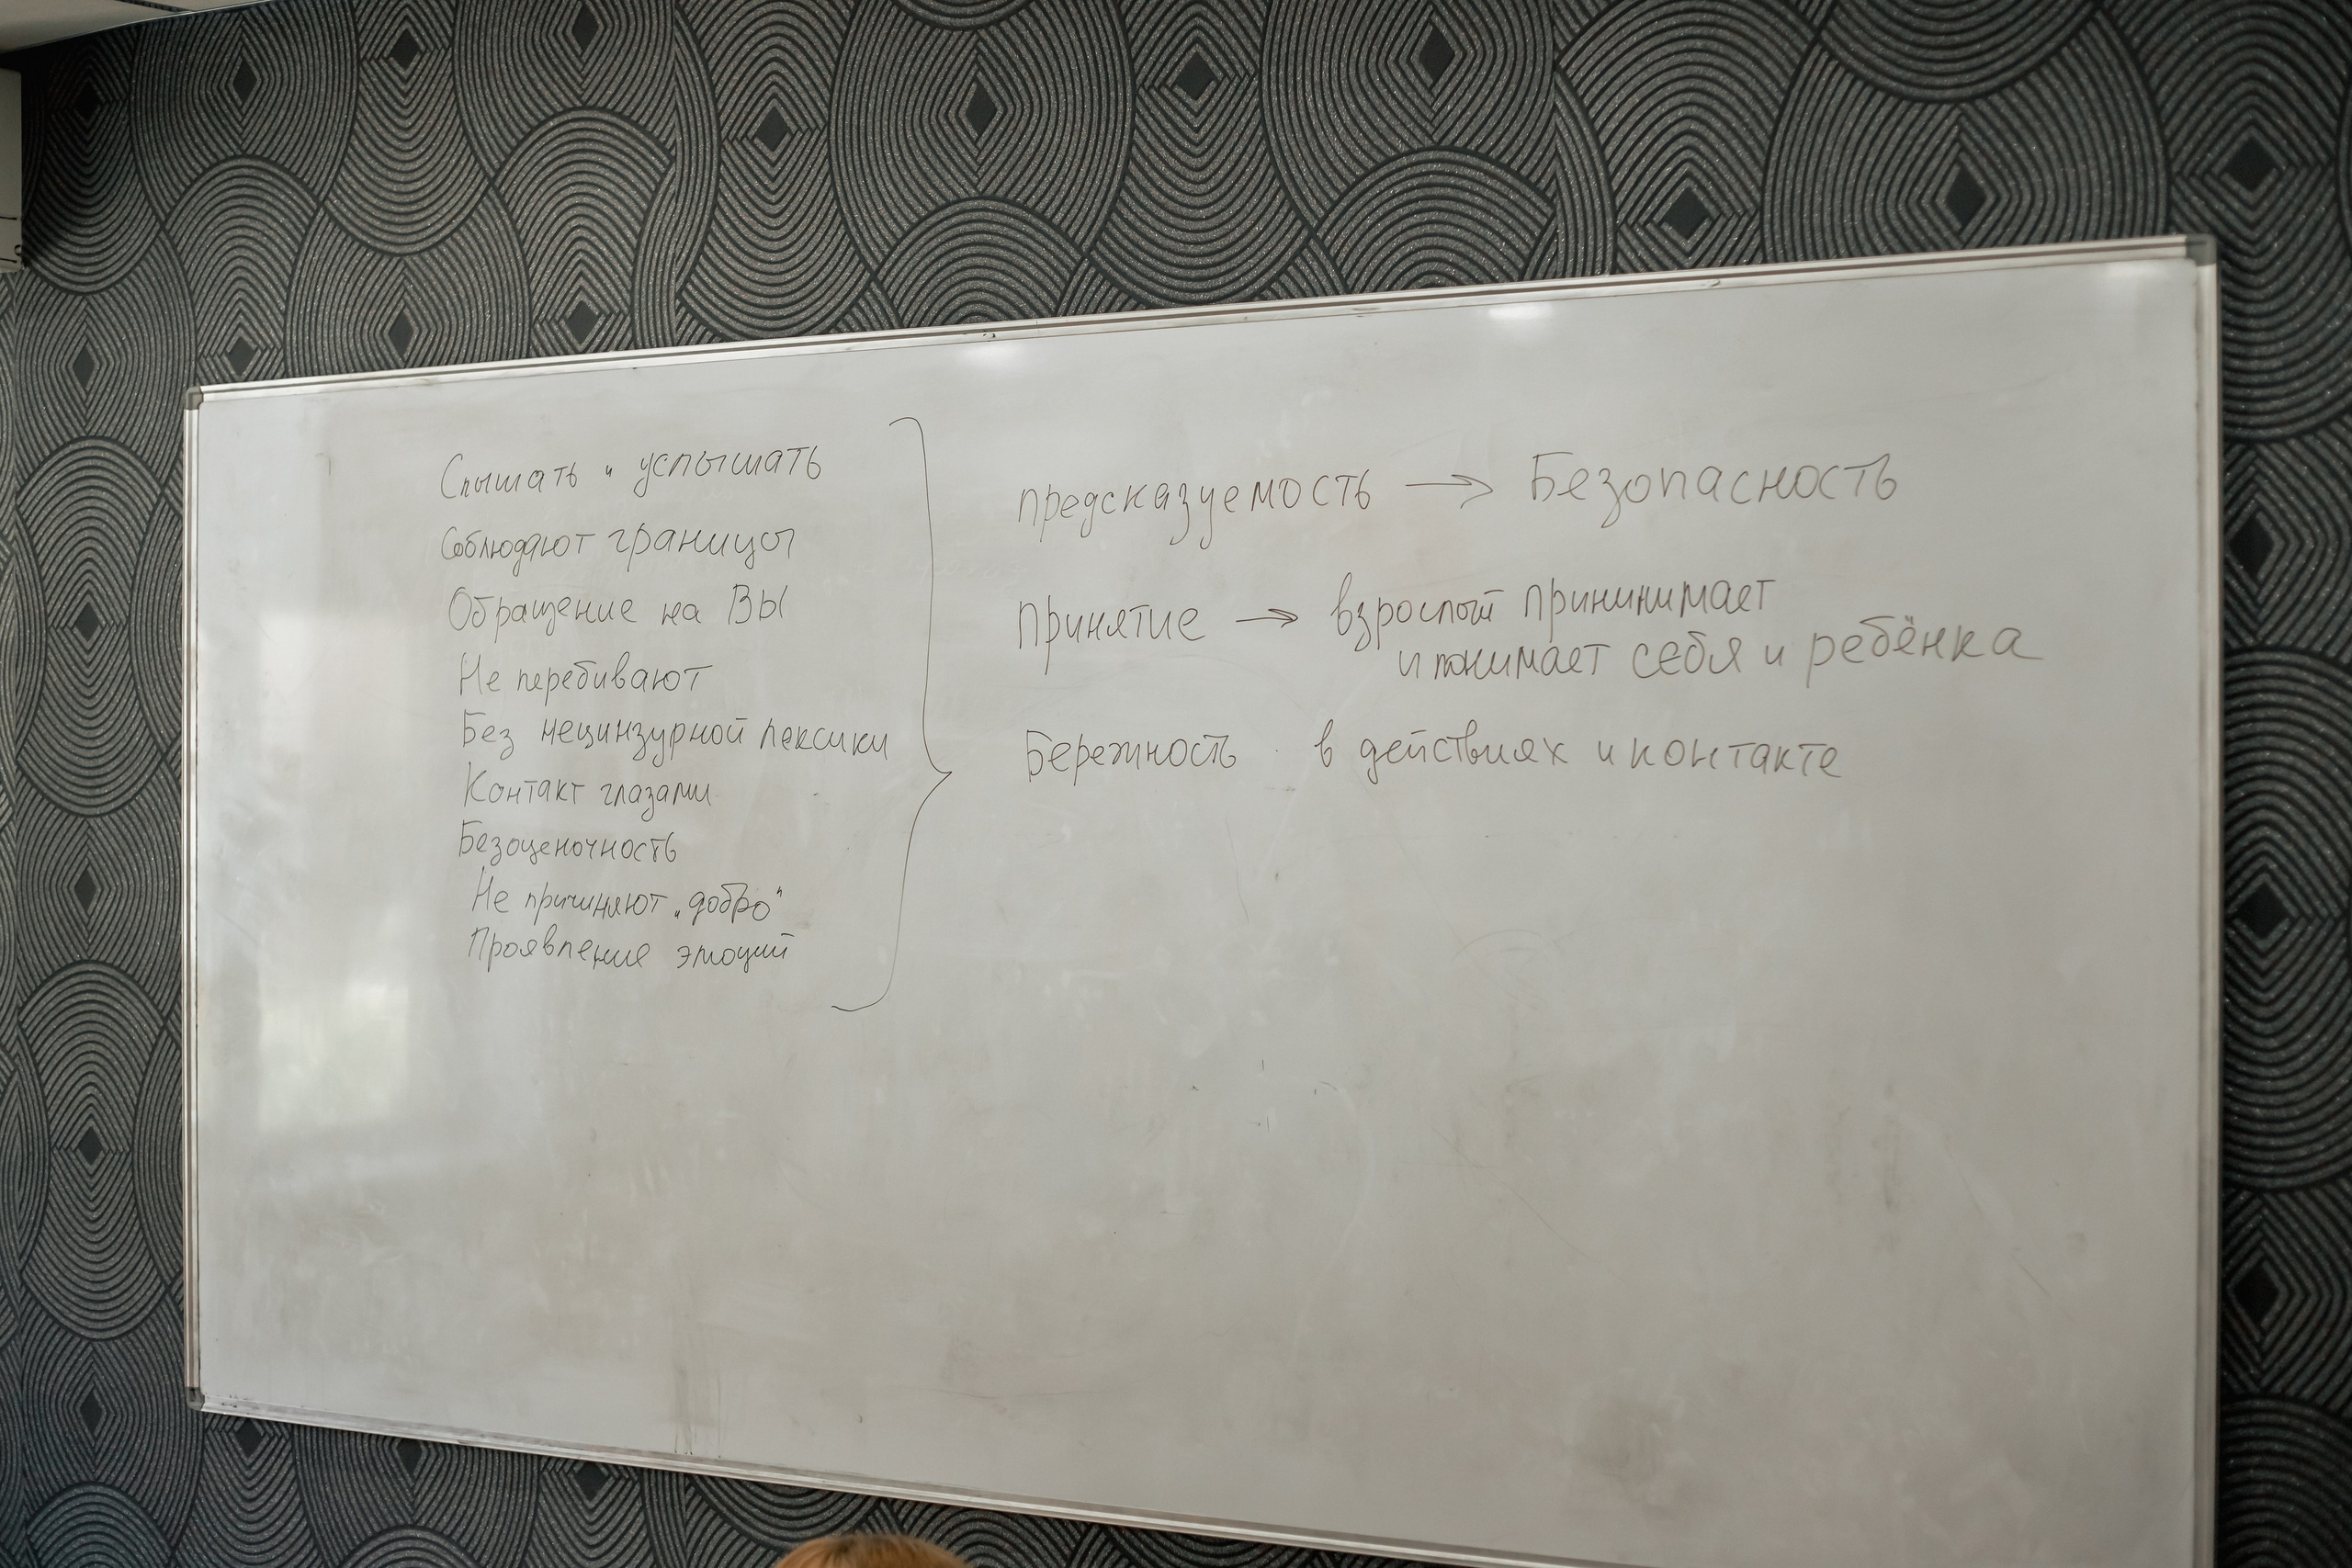 Слышать и услышать
Соблюдают границы
Обращение на ВЫ
Не перебивают
Без нецинзурной лексики
Контакт глазами
Безоценочность
Не причиняют „добро"
Проявление эмоций
предсказуемость → Безопасность
Принятие → взрослый принимает
и понимает себя и ребёнка
Бережность в действиях и контакте